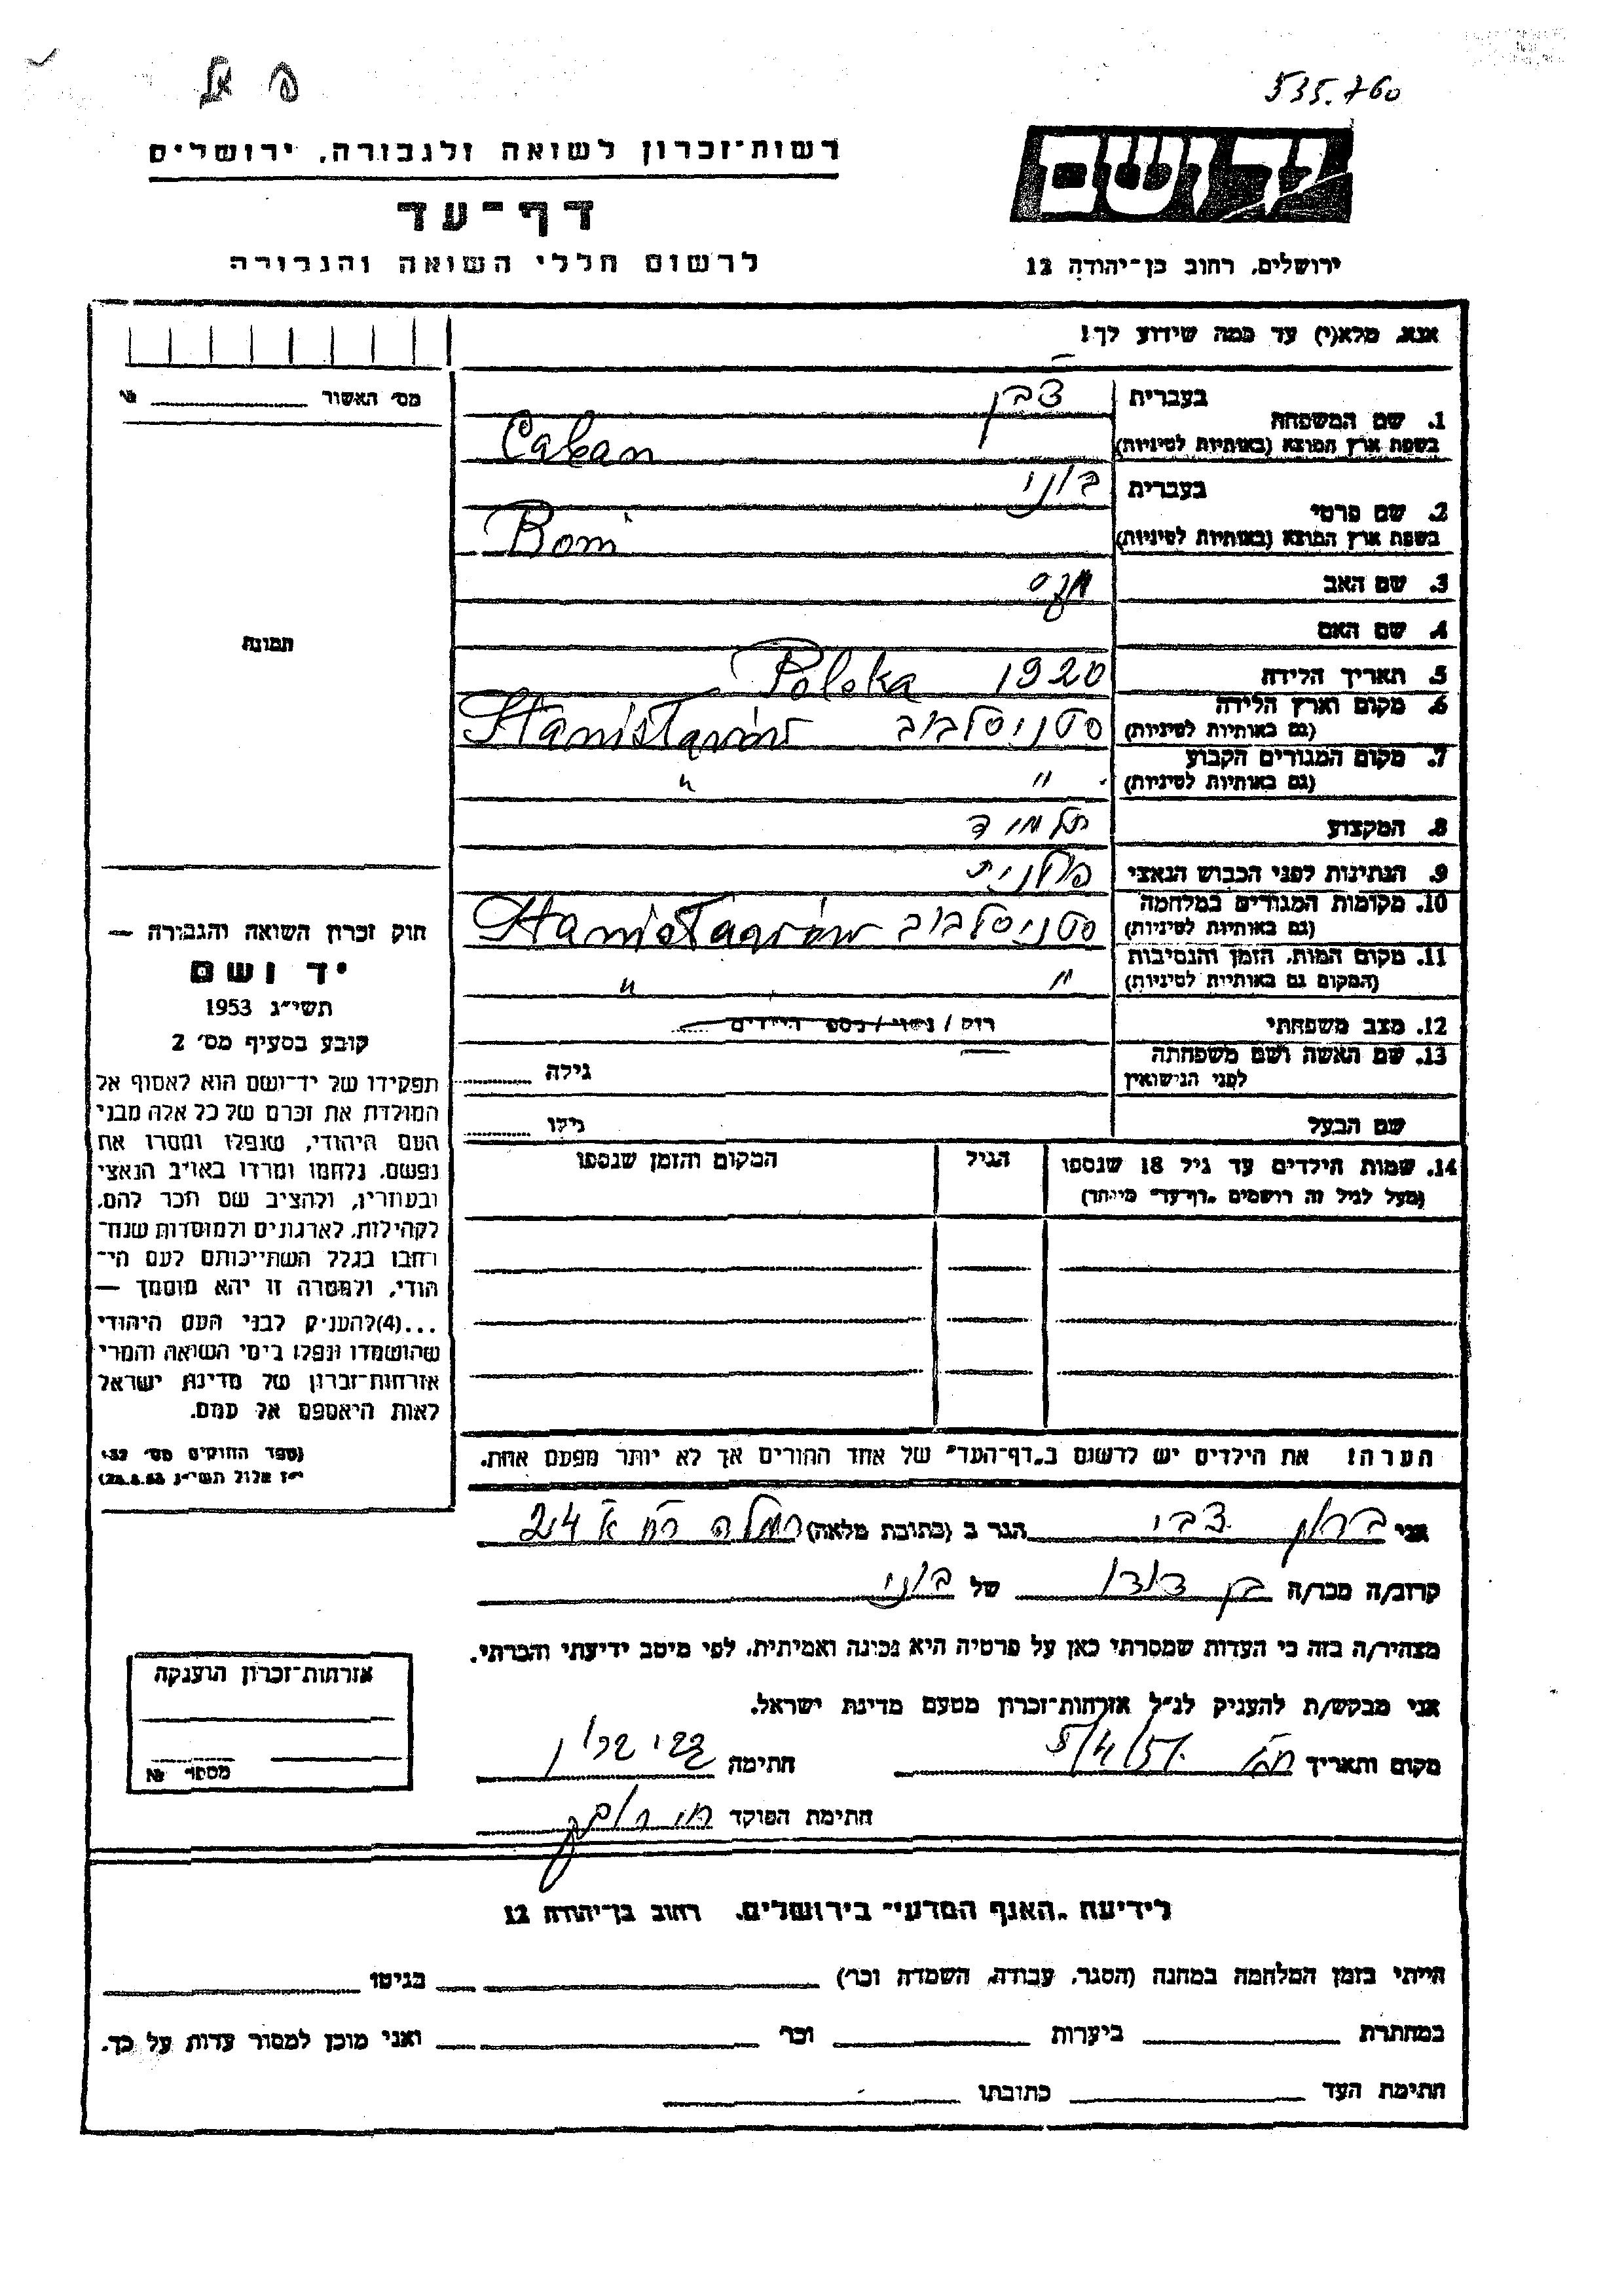 535.760
רשות־זכרון לשואה ולגבורה, ירושלים
דף־עד
לרשום חללי השואה והגבורה
יד ושם
ירושלים, רחוב בן־יהודה 12
אנא, מלא(י) עד כמה שידוע לך!
מס׳ האשור
1. שם המשפחה
בעברית צבן
בשפת ארץ המוצא (באותיות לטיניות) Caban
2. שם פרטי
בעברית בוני
בשפת ארץ המוצא (באותיות לטיניות) Boni
3. שם האב
4. שם האם
5. תאריך הלידה 1920 Polska
6. מקום וארץ הלידה
(גם באותיות לטיניות) סטניסלבוב Stanisławów
7. מקום המגורים הקבוע
(גם באותיות לטיניות) " "
8. המקצוע תלמיד
9. הנתינות לפני הכבוש הנאצי פולנית
10. מקומות המגורים במלחמה
(גם באותיות לטיניות) סטניסלבוב Stanisławów
11. מקום המות, הזמן והנסיבות
(המקום גם באותיות לטיניות) " "
12. מצב משפחתי רוק / נשוי / מספר הילדים
13. שם האשה ושם משפחתה
לפני הנישואין
גילה
שם הבעל
גילו
14. שמות הילדים עד גיל 18 שנספו
(מעל לגיל זה רושמים „דף־עד" מיוחד)
הגיל
המקום והזמן שנספו
הערה! את הילדים יש לרשום ב„דף־העד" של אחד ההורים אך לא יותר מפעם אחת.
תמונה
חוק זכרון השואה והגבורה —
יד ושם
תשי״ג 1953
קובע בסעיף מס׳ 2
תפקידו של יד־ושם הוא לאסוף אל
המולדת את זכרם של כל אלה מבני
העם היהודי, שנפלו ומסרו את
נפשם, נלחמו ומרדו באויב הנאצי
ובעוזריו, ולהציב שם וזכר להם,
לקהילות, לארגונים ולמוסדות שנח־
רבו בגלל השתייכותם לעם הי־
הודי, ולמטרה זו יהא מוסמך —
...(4)להעניק לבני העם היהודי
שהושמדו ונפלו בימי השואה והמרי
אזרחות־זכרון של מדינת ישראל
לאות היאספם אל עמם.
(ספר החוקים מס׳ 132
י״ז אלול תשי״ג 28.8.53)
אני ברון צבי הגר ב (כתובת מלאה) רמלה
קרוב/ה מכר/ה בן דודו של בוני
מצהיר/ה בזה כי העדות שמסרתי כאן על פרטיה היא נכונה ואמיתית, לפי מיטב ידיעתי והכרתי.
אני מבקש/ת להעניק לנ״ל אזרחות־זכרון מטעם מדינת ישראל.
מקום ותאריך חתימה צבי ברון
חתימת הפוקד
אזרחות־זכרון הוענקה
מספר №
לידיעת „האגף המדעי" בירושלים, רחוב בן־יהודה 12
הייתי בזמן המלחמה במחנה (הסגר, עבודה, השמדה וכו׳) בגיטו
במחתרת ביערות וכו׳ ואני מוכן למסור עדות על כך.
חתימת העד כתובתו